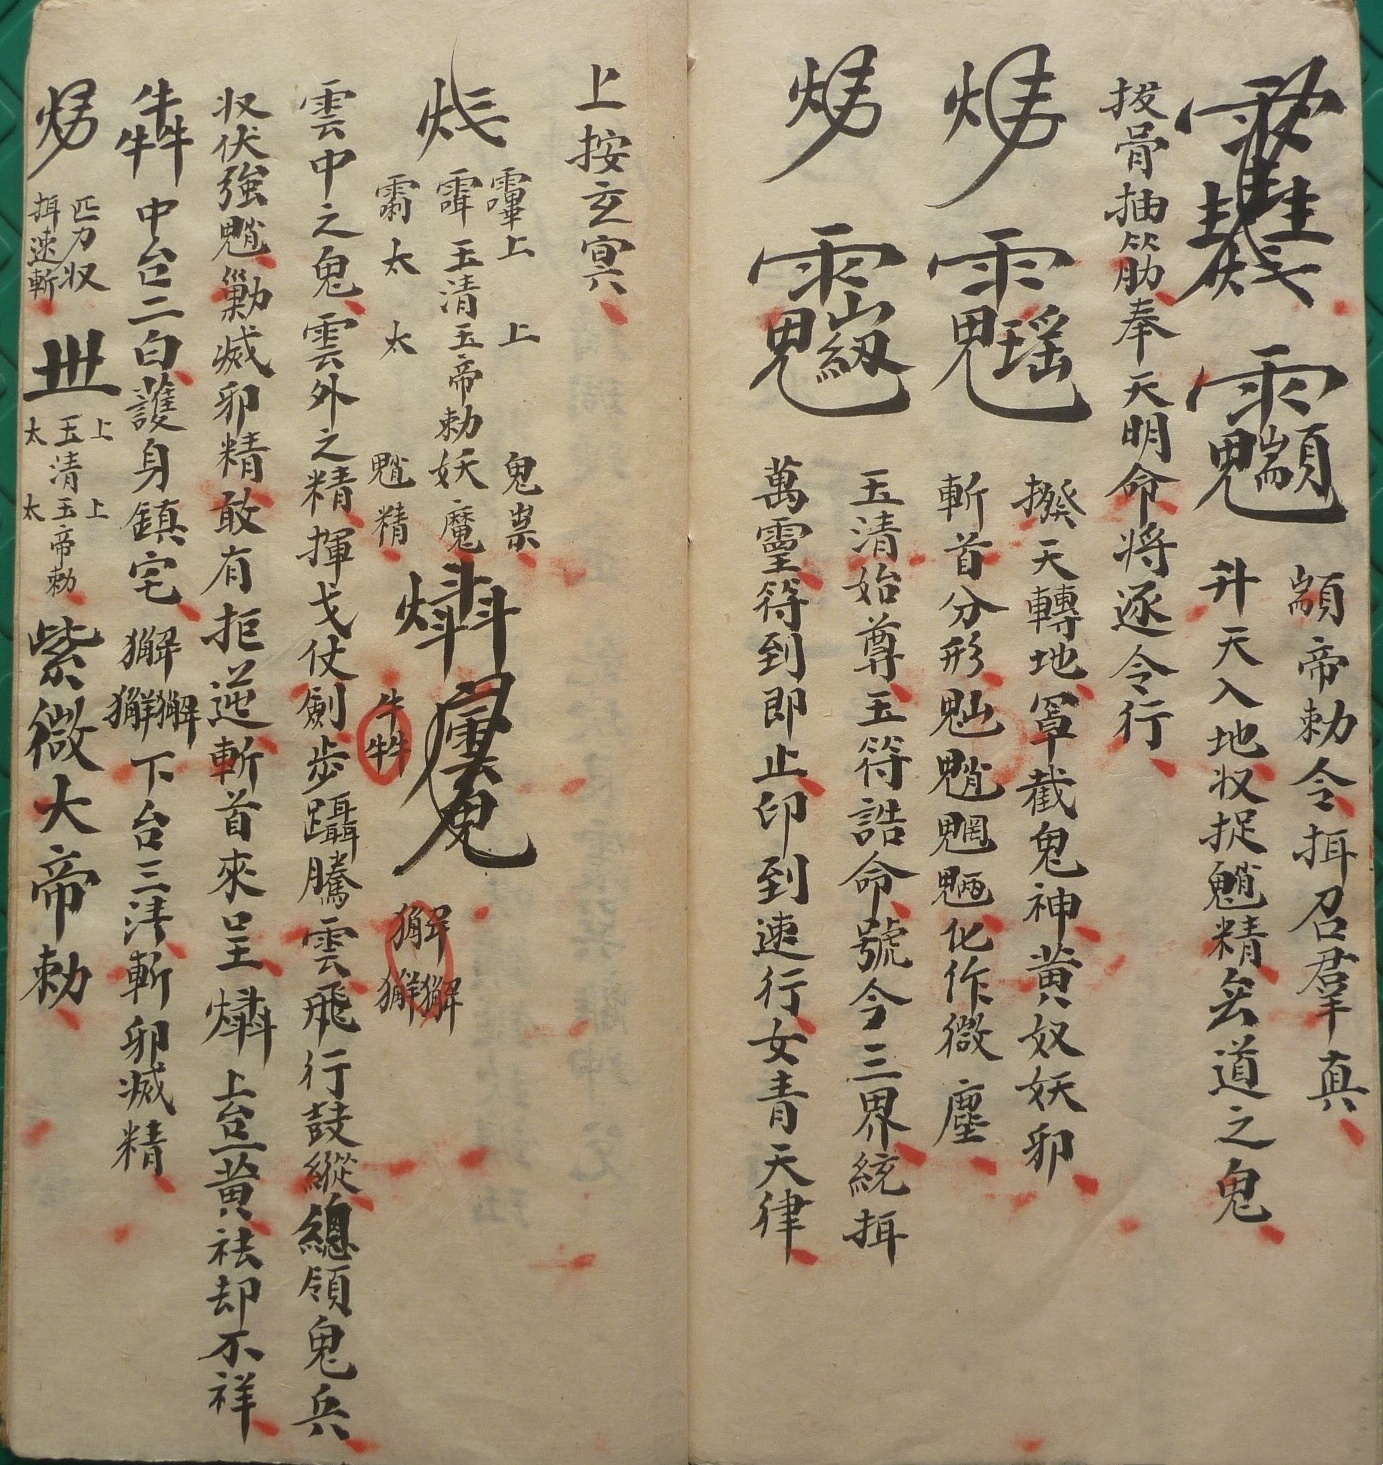 顓帝勅令揖召羣真
升天入地収捉魈精矣道之鬼
拔骨抽筋奉天明命将逐令行
撥天轉地罩截鬼神黄奴妖邪
斬首分形魈魍魎化作微塵
玉清始尊玉符誥命號令三界統揖
萬靈符到即止印到速行女青天律
上按玄冥
上 上 鬼祟
玉清玉帝勅妖魔
太 太 魈精
雲中之鬼雲外之精揮戈仗劍步躡騰雲飛行鼓縱總領鬼兵
収伏強魈勦滅邪精敢有拒逆斬首來呈 上台一黄祛却不祥
犇 中台二白護身鎮宅 下台三清斬邪滅精
匹刀収
揖速斬
上 上
玉清玉帝勅
太 太
紫微大帝勅